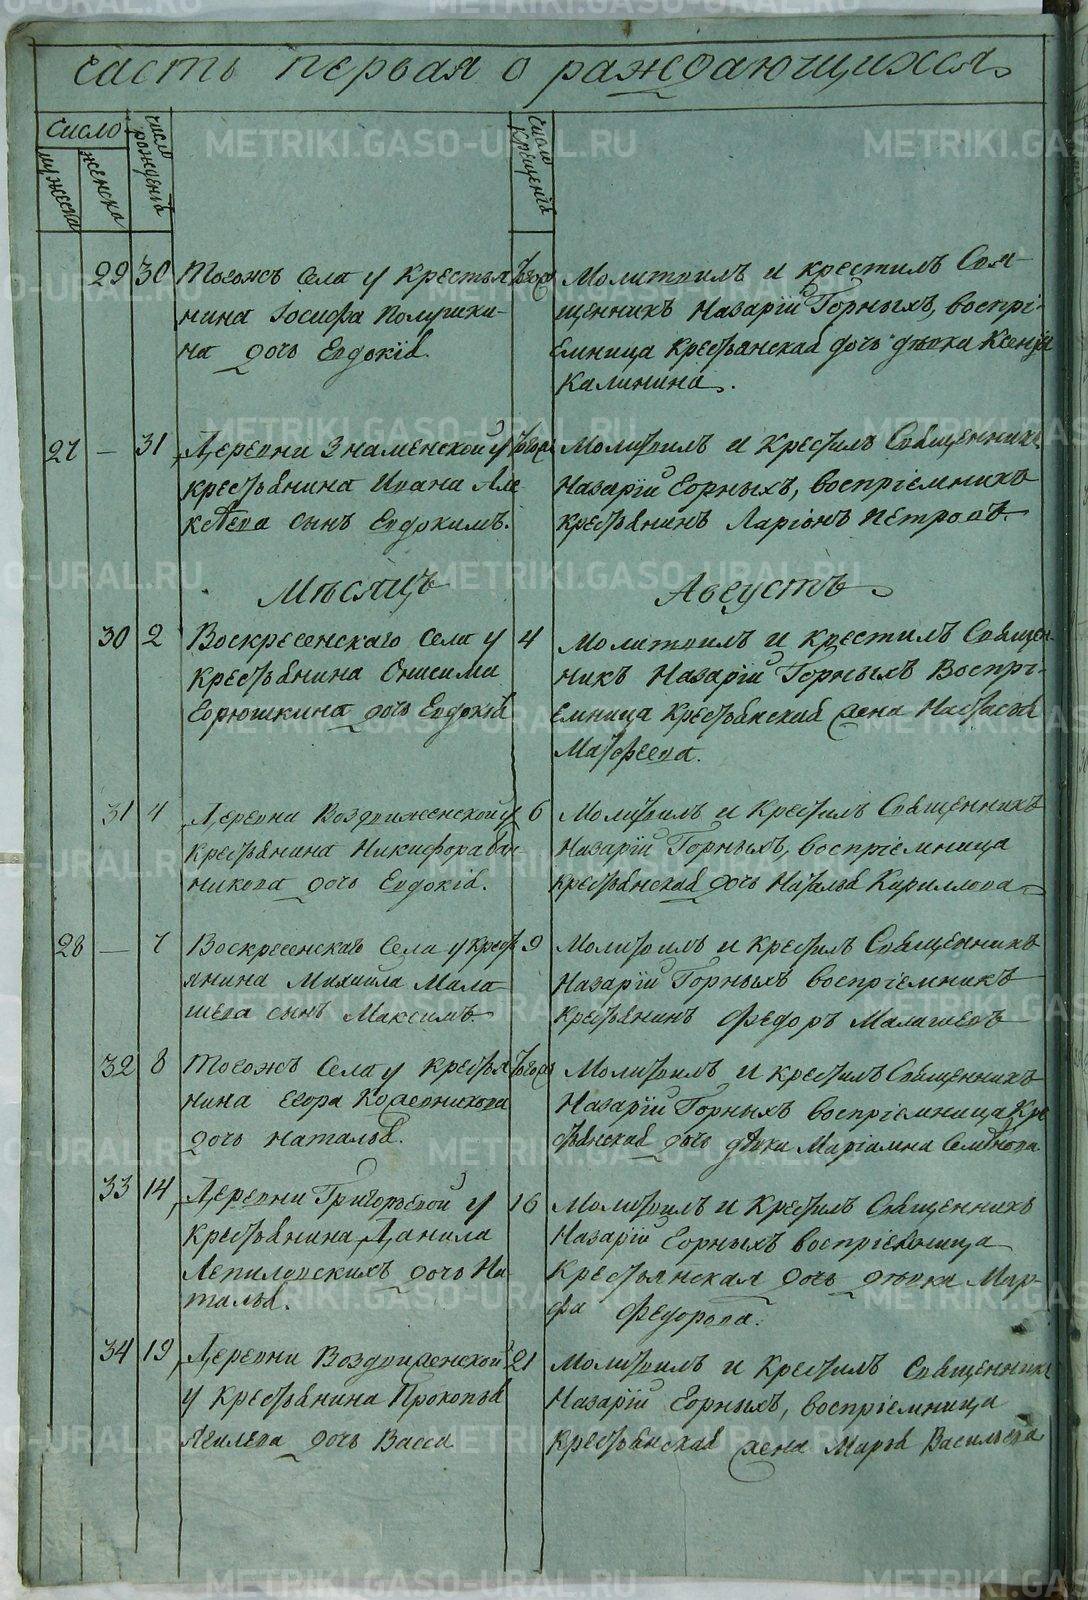 часть первая о раждающихся
число
мужеска
женска
число рожденiя
число крещенiя
29 30 Тогожъ Села у крестья
нина Iосифа Полушки-
на дочь Евдокiя.
Молитвилъ и крестилъ Свя-
щенникъ Назарiй Горныхъ, воспрi-
емница крестьянская дочь дѣвка Ксенiя
Калинина.
27 — 31 Деревни Знаменской у
крестьянина Ивана Але
ксѣева сынъ Евдокимъ.
Молитвилъ и крестилъ Священникъ
Назарiй Горныхъ, воспрiемникъ
крестьянинъ Ларiонъ Петровъ.
Мѣсяцъ Августъ
30 2 Воскресенскаго Села у
крестьянина Онисима
Горюшкина дочь Евдокiя
4 Молитвилъ и крестилъ Священ-
никъ Назарiй Горныхъ Воспрi-
емница Крестьянская жена Настасья
Матфеева.
31 4 Деревни Воздвиженской у
крестьянина Никифора
дочь Евдокiя.
6 Молитвилъ и крестилъ Священникъ
Назарiй Горныхъ, воспрiемница
крестьянская дочь Наталья Кириллова
28 — 7 Воскресенскаго Села у крест
янина Михаила Мала
шева сынъ Максимъ
9 Молитвилъ и крестилъ Священникъ
Назарiй Горныхъ воспрiемникъ
крестьянинъ Федоръ Малашевъ
32 8 Тогожъ Села у крестья
нина Егора Кожевникова
дочь Наталья.
Молитвилъ и крестилъ Священникъ
Назарiй Горныхъ воспрiемница Кре
стьянская дочь дѣвка Марiамна Семѣнова
33 14 Деревни Григорьевой у
крестьянина Данила
Лепиловскихъ дочь На-
талья.
16 Молитвилъ и Крестилъ Священникъ
Назарiй Горныхъ воспрiемница
Крестьянская дочь дѣвка Мар-
фа Федорова.
34 19 Деревни Воздвиженской
у Крестьянина Прокопья
дочь Васса
21 Молитвилъ и Крестилъ Священникъ
Назарiй Горныхъ, воспрiемница
Крестьянская жена Марья Васильева
METRIKI.GASO-URAL.RU